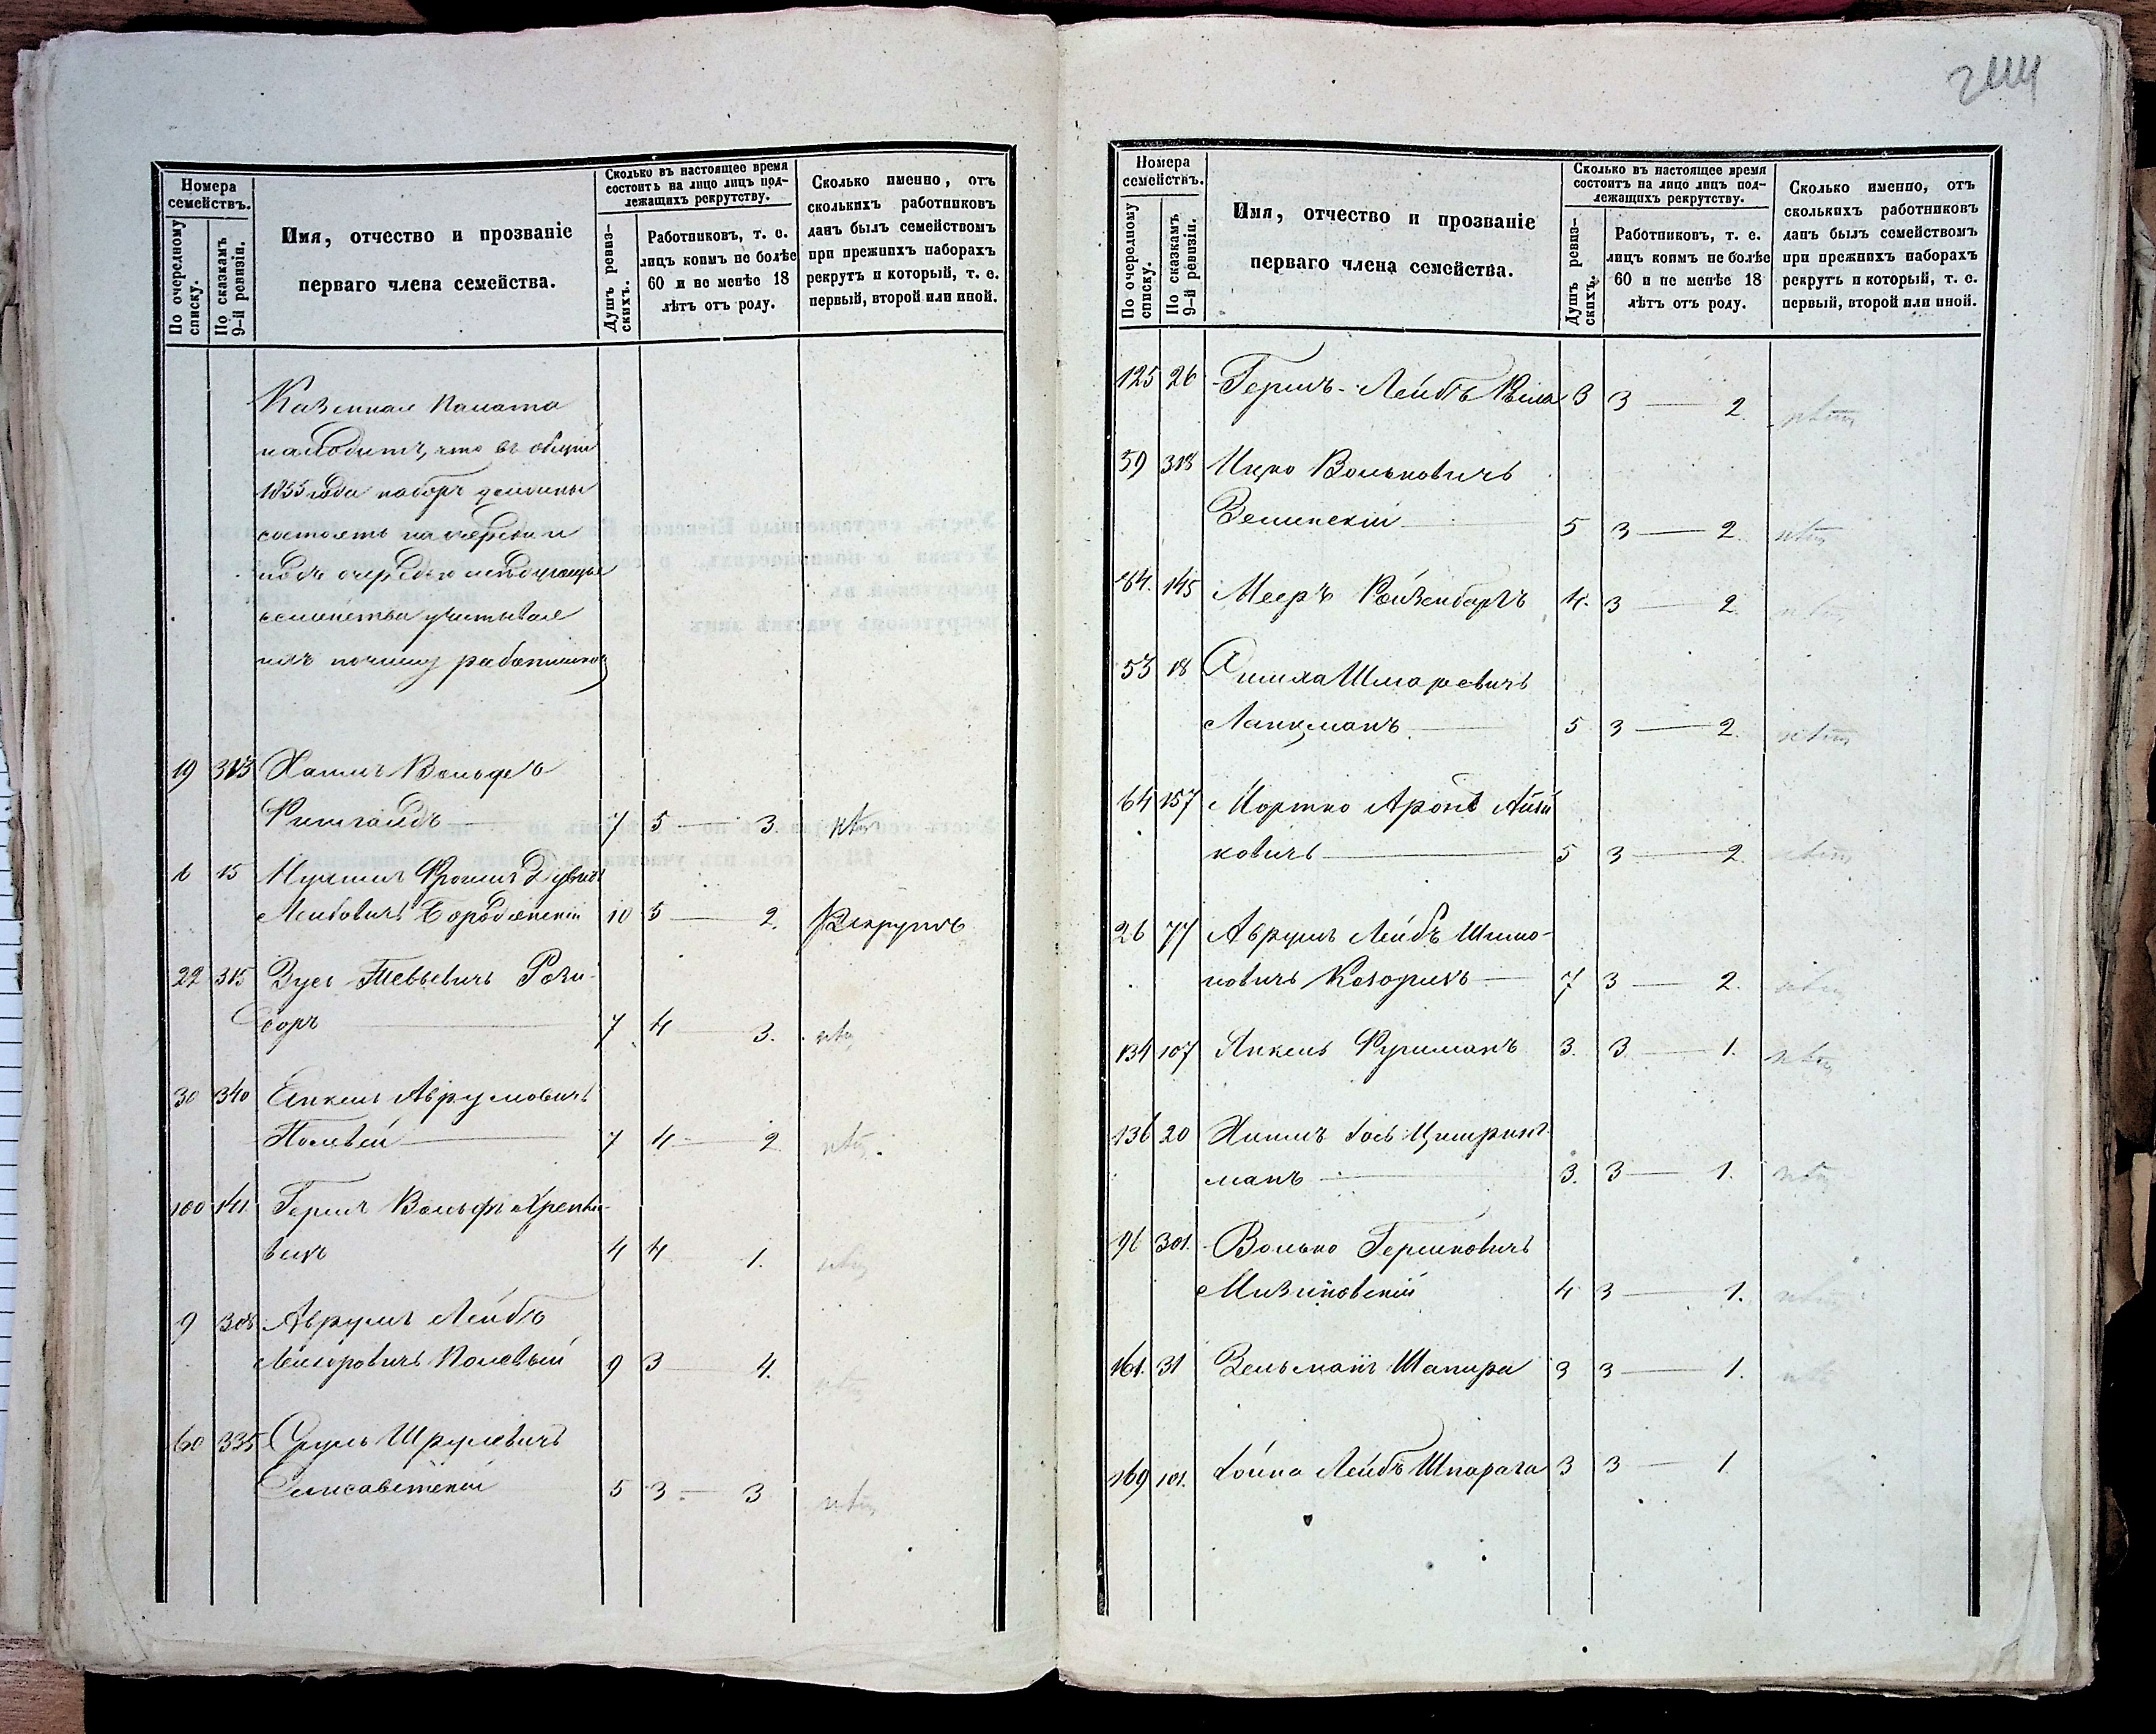 Номера семействъ.
По очередному списку.
По сказкамъ 9-й ревизіи.
Имя, отчество и прозваніе
перваго члена семейства.
Сколько въ настоящее время
состоитъ на лицо лицъ под-
лежащихъ рекрутству.
Душъ ревиз-
скихъ.
Работниковъ, т. е.
лицъ коимъ не болѣе
60 и не менѣе 18
лѣтъ отъ роду.
Сколько именно, отъ
сколькихъ работниковъ
данъ былъ семействомъ
при прежнихъ наборахъ
рекрутъ и который, т. е.
первый, второй или иной.
Казенная Палата
находитъ, что въ общій
1855 года наборъ должны
состоять на очереди и
подъ очередью слѣдующіе
семейства учитывая
ихъ по числу работников
19 313 Хаимъ Вольфъ
7 5 — 3. нѣтъ
6 15 Фроимъ
Лейбовичъ Бородянскій 10 5 — 2. Рекрутъ
22 315 Зусь Тевьевичъ Рези-
доръ 7 4 3. нѣтъ
30 340 Янкель Аврумовичъ
Полевой — 7 4 — 2 нѣтъ.
100 141. Герш Вольфъ
викъ 4 4 1. нѣтъ
9 308 Аврумъ Лейбъ
Лейзоровичъ Полевый 9 3 — 4. нѣтъ
60 335 Сруль Шруlевичъ
Елисаветскій 5 3 — 3 нѣтъ
Номера
семействъ.
По очередному
списку.
По сказкамъ
9-й ревизіи.
Имя, отчество и прозваніе
перваго члена семейства.
Сколько въ настоящее время
состоитъ на лицо лицъ под-
лежащихъ рекрутству.
Душъ ревиз-
скихъ.
Работниковъ, т. е.
лицъ коимъ не болѣе
60 и не менѣе 18
лѣтъ отъ роду.
Сколько именно, отъ
сколькихъ работниковъ
данъ былъ семействомъ
при прежнихъ наборахъ
рекрутъ и который, т. е.
первый, второй или иной.
125 26 Гершъ-Лейбъ 3 3 — 2 нѣтъ
59 318 Ицко Вольковичъ
5 3 — 2. нѣтъ
84. 145 Мееръ Ройзенбергъ 4. 3 — 2. нѣтъ
53 18 Шмаревичъ
Ланцманъ — 5 3 — 2. нѣтъ
64 157 Мортко Аронъ Айзи
ковичъ — 5 3 — 2 нѣтъ
26 77 Аврумъ Лейбъ Шимо-
новичъ — 7 3 — 2. нѣтъ
134 107 Янкель Фурманъ 3. 3 — 1. нѣтъ
136 20 Хаимъ Іось Цимринг
манъ — 3. 3 — 1. нѣтъ
96 301. Волько Гершковичъ
4 3 — 1. нѣтъ
161. 31 Зельманъ Шапира 3 3 — 1. нѣтъ
169 101. Іойна Лейбъ Шпарага 3 3 — 1